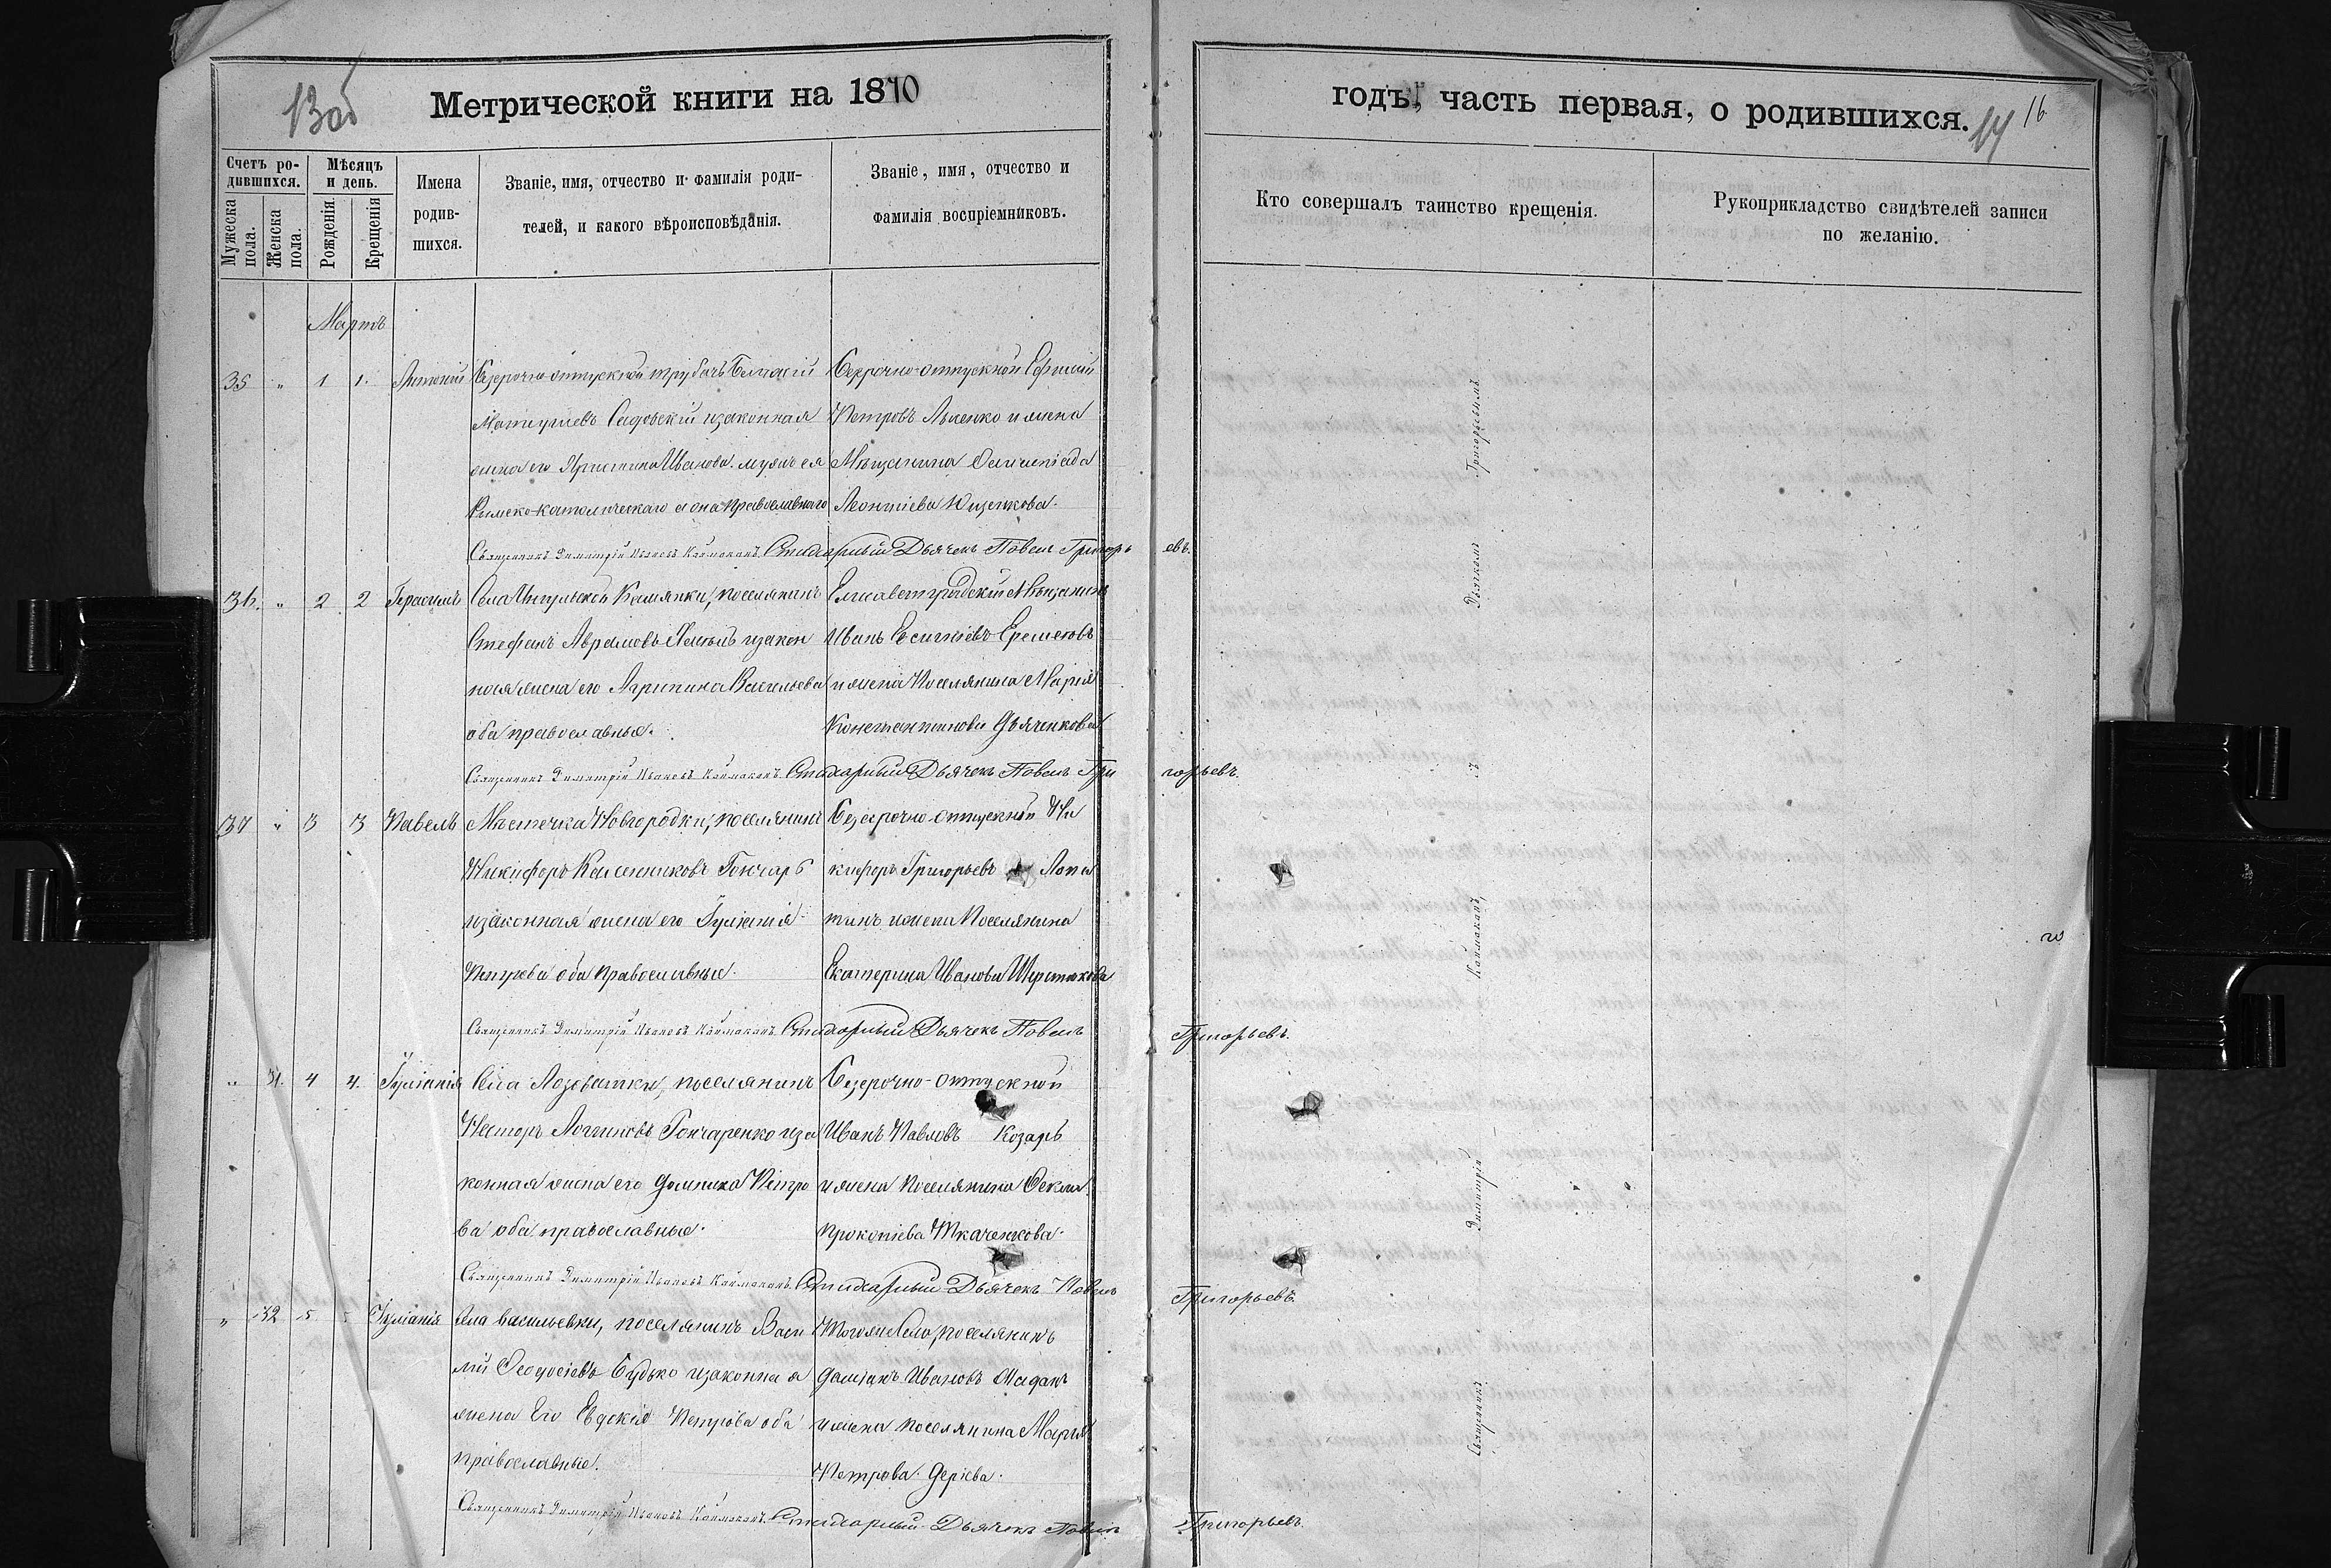 13об
Метрической книги на 1870
годъ, часть первая, о родившихся.
14 16
Счетъ родившихся.
Мужеска пола.
Женска пола.
Мѣсяцъ и день.
Рожденія.
Крещенія
Имена родившихся.
Званіе, имя, отчество и фамилія родителей, и какого вѣроисповѣданія.
Званіе, имя, отчество и фамилія воспріемниковъ.
Кто совершалъ таинство крещенія.
Рукоприкладство свидѣтелей записи по желанію.
Мартъ
35 " 1 1. Антоній
Безсрочно-отпускной трубачъ
Садовскій изаконная
жена его Иванова. мужъ ея
Римско-католическаго а она православнаго
Безсрочно-отпускной Ефимій
Петровъ и жена
Мѣщанина Олимпіада
Леонтіева
Священникъ Димитрій Ивановъ Каймаканъ. Стихарный Дьячекъ Павелъ Григорьевъ.
36. " 2 2 Герасимъ
Села Ингульской Каменки, поселянинъ
Стефанъ Аврамовъ изакон
ная жена его Агрипина Васильева
оба православные.
Елисаветградскій Мѣщанинъ
Иванъ
и жена Поселянина Марія
Константинова Дьяченкова
Священникъ Димитрій Ивановъ Каймаканъ. Стихарный Дьячекъ Павелъ Григорьевъ.
37 " 3 3 Павелъ
Мѣстечка Новгородки, поселянинъ
Никифоръ Гончаръ
изаконная жена его Іуліанія
оба Православные.
Безсрочно-отпускной Ни
кифоръ Григорьевъ Лопа
тинъ и жена Поселянина
Екатерина Иванова
Священникъ Димитрій Ивановъ Каймаканъ. Стихарный Дьячекъ Павелъ Григорьевъ.
" 31. 4 4. Іуліанія
Села Лозоватки, поселянинъ
Несторъ Логиновъ Гончаренко иза
конная жена его Домника Петро
ва оба православные.
Безсрочно-отпускной
Иванъ Павловъ Козарь
и жена Поселянина Фекла
Прокопіева Ткаченкова.
Священникъ Димитрій Ивановъ Каймаканъ. Стихарный Дьячекъ Павелъ Григорьевъ.
" 32 5 5 Іуліанія
Села Васильевки, поселянинъ Васи
лій Феодосіевъ Будько изаконная
жена Его Евдокія Петрова оба
православные.
Тогоже Села, поселянинъ
Даміанъ Ивановъ Маданъ
и жена поселянина Марія
Петрова Деріева.
Священникъ Димитрій Ивановъ Каймаканъ. Стихарный Дьячекъ Павелъ Григорьевъ.
Священникъ Димитрій Каймаканъ, съ Дьячкомъ Григорьевымъ